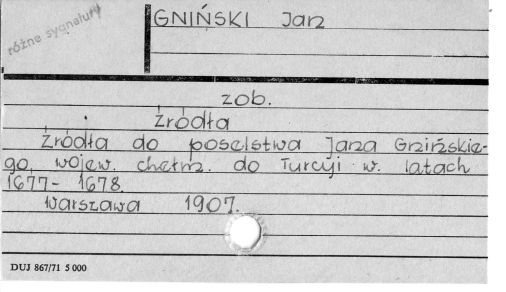 różne sygnatury
GNIŃSKI Jan
zob.
Źródła
Źródła do poselstwa Jana Gnińskie-
go, wojew. chełm. do Turcyi w. latach
1677- 1678.
Warszawa 1907.
DUJ 867/71 5 000